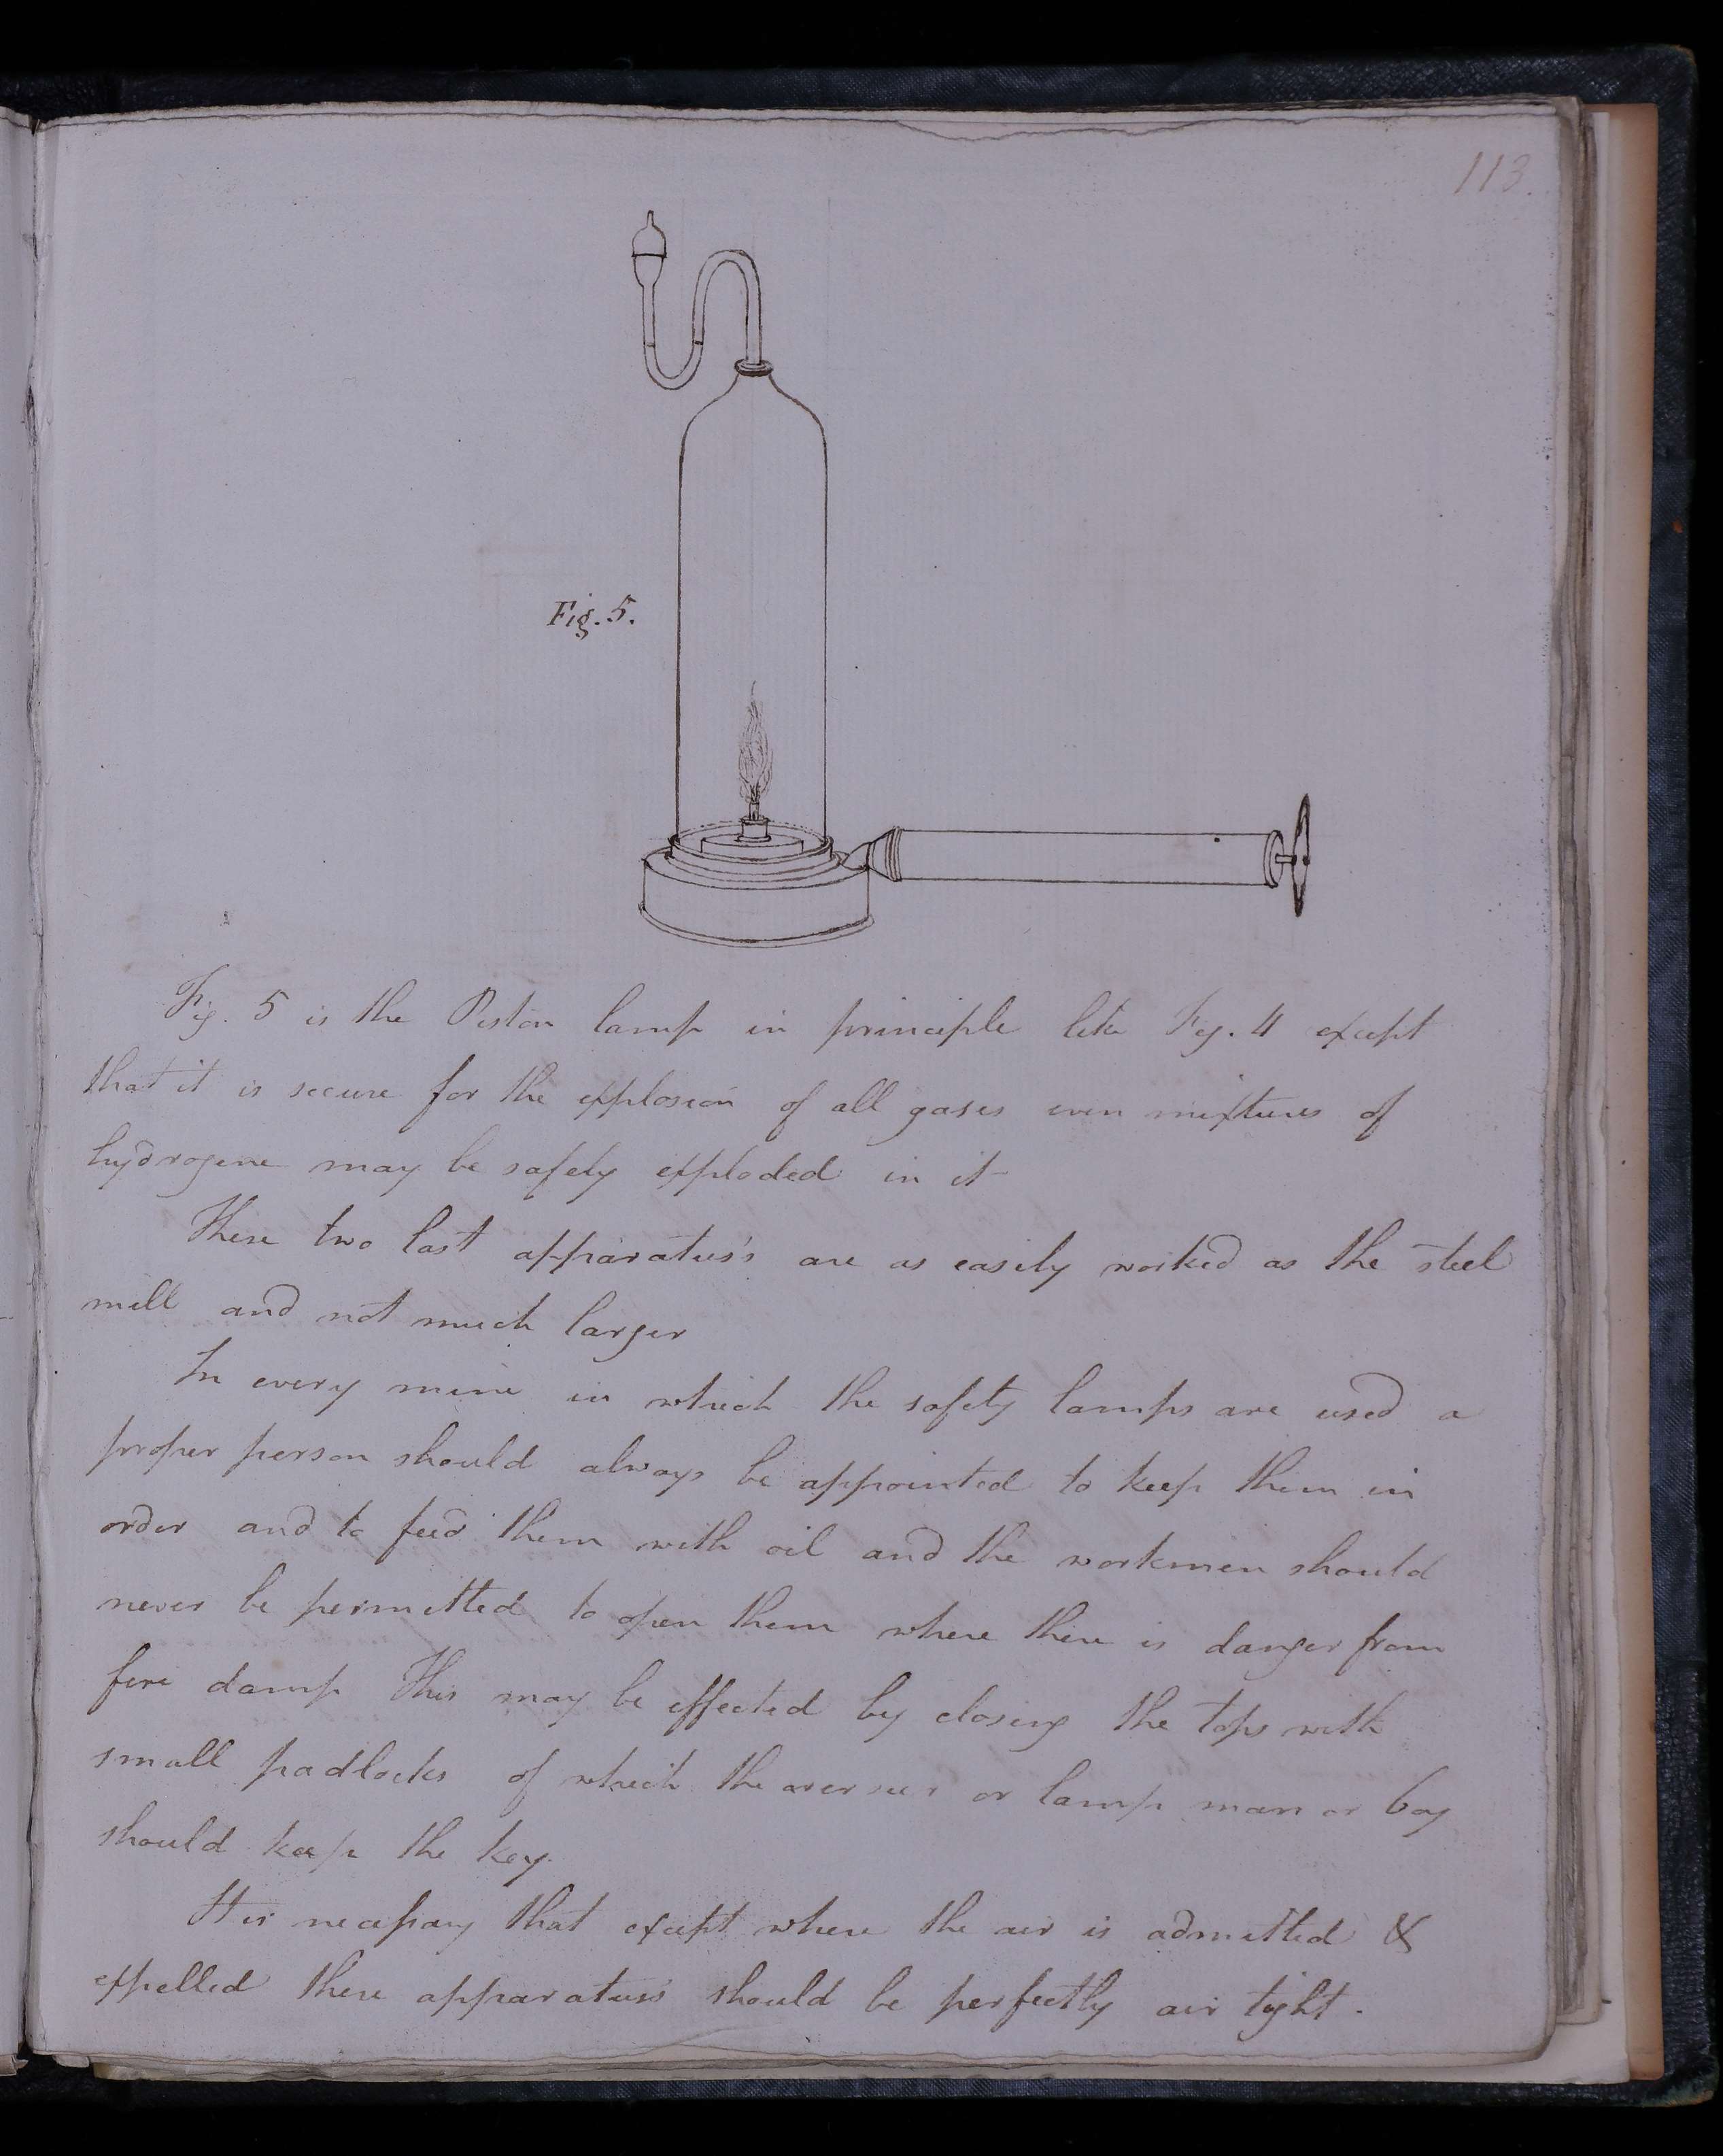 113.
Fig. 5.
Fig. 5 is the Piston lamp in principle like Fig. 4 except
that it is secure for the explosion of all gases even mixtures of
hydrogene may be safely exploded in it
These two last apparatus's are as easily worked as the steel
mill and not much larger
In every mine in which the safety lamps are used a
proper person should always be appointed to keep them in
order and to feed them with oil and the workmen should
never be permitted to open them where there is danger from
fire damp This may be effected by closing the tops with
small padlocks of which the overseer or lamp man or boy
should keep the key.
It is necessary that except where the air is admitted &
expelled these apparatus's should be perfectly air tight.